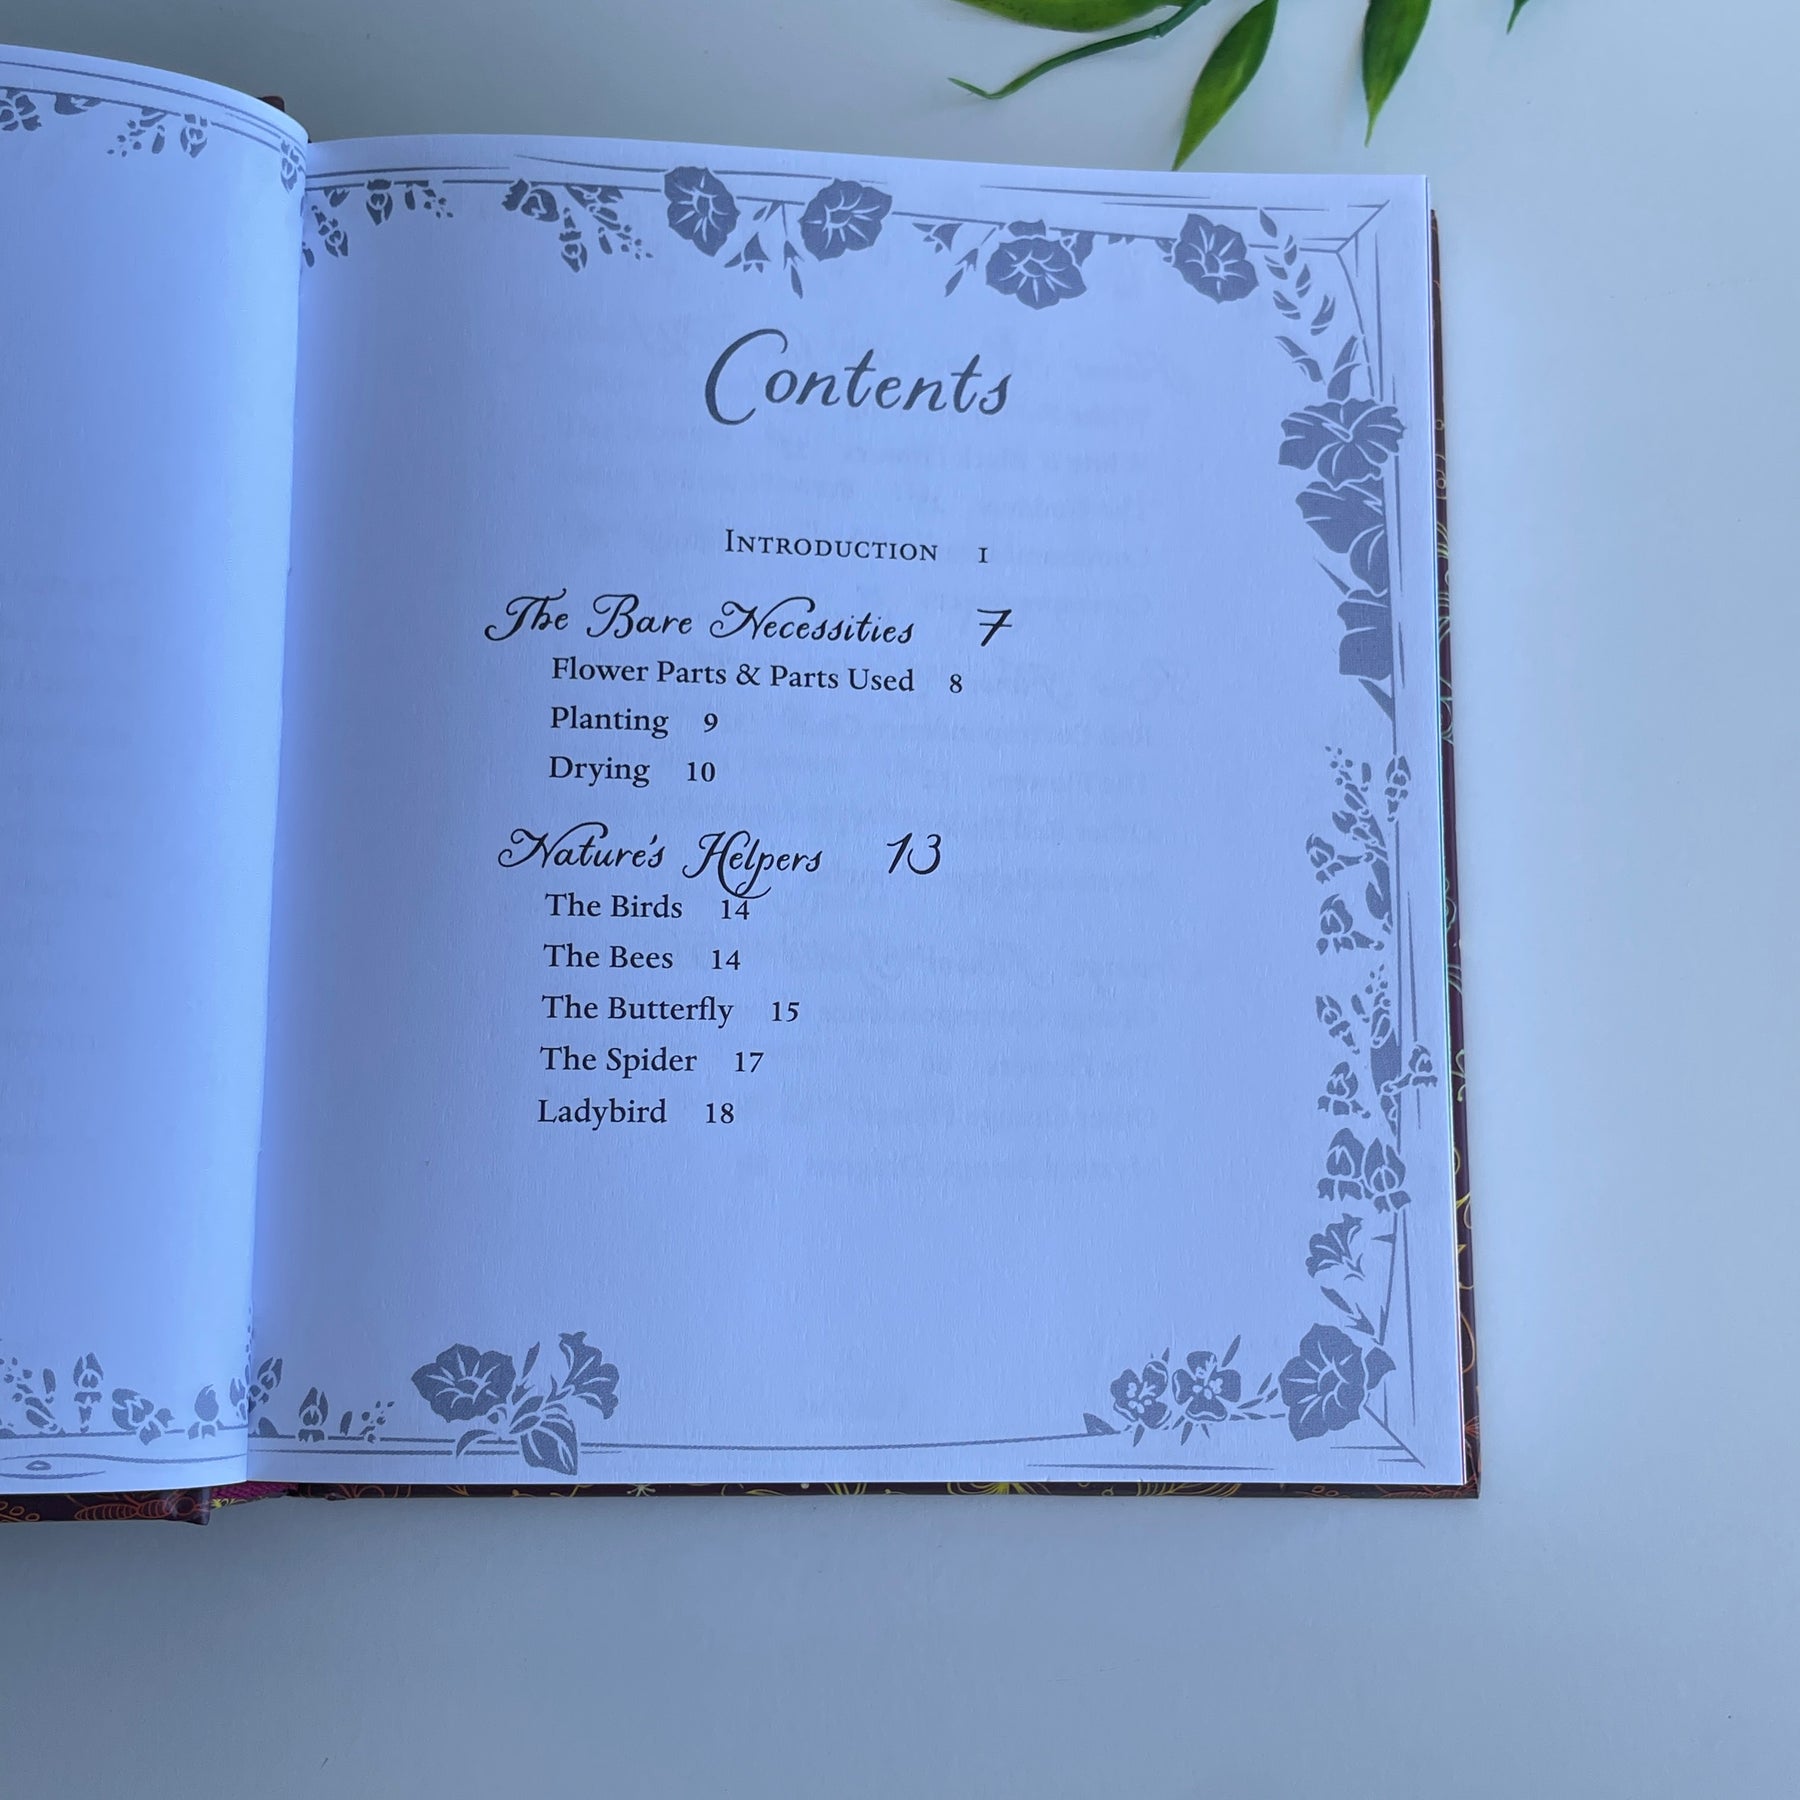 Contents
INTRODUCTION 1
The Bare Necessities 7
Flower Parts & Parts Used 8
Planting 9
Drying 10
Nature's Helpers 13
The Birds 14
The Bees 14
The Butterfly 15
The Spider 17
Ladybird 18